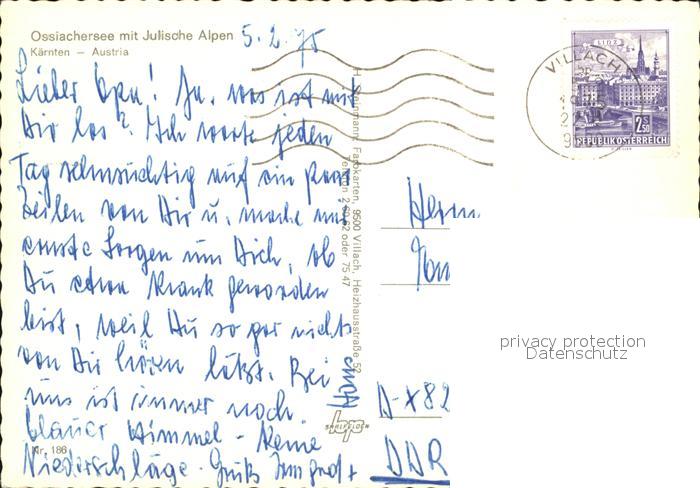 Ossiachersee mit Julische Alpen
Kärnten – Austria
5. 2. 75
Lieber Opa! Ja, was ist mit
Dir los? Ich warte jeden
Tag sehnsüchtig auf ein paar
Zeilen von Dir u. mache mir
ernste Sorgen um Dich, ob
Du etwa krank geworden
bist, weil Du so gar nichts
von Dir hören läßt. Bei
uns ist immer noch
blauer Himmel - keine
Niederschläge. Gruß
Nr. 186
H. Steinmann, Farbkarten, 9500 Villach, Heizhausstraße 52
Telefon 2 60 62 oder 75 47
VILLACH
LINZ
2S50
REPUBLIK ÖSTERREICH
Herrn
D-X82
DDR
privacy protection
Datenschutz